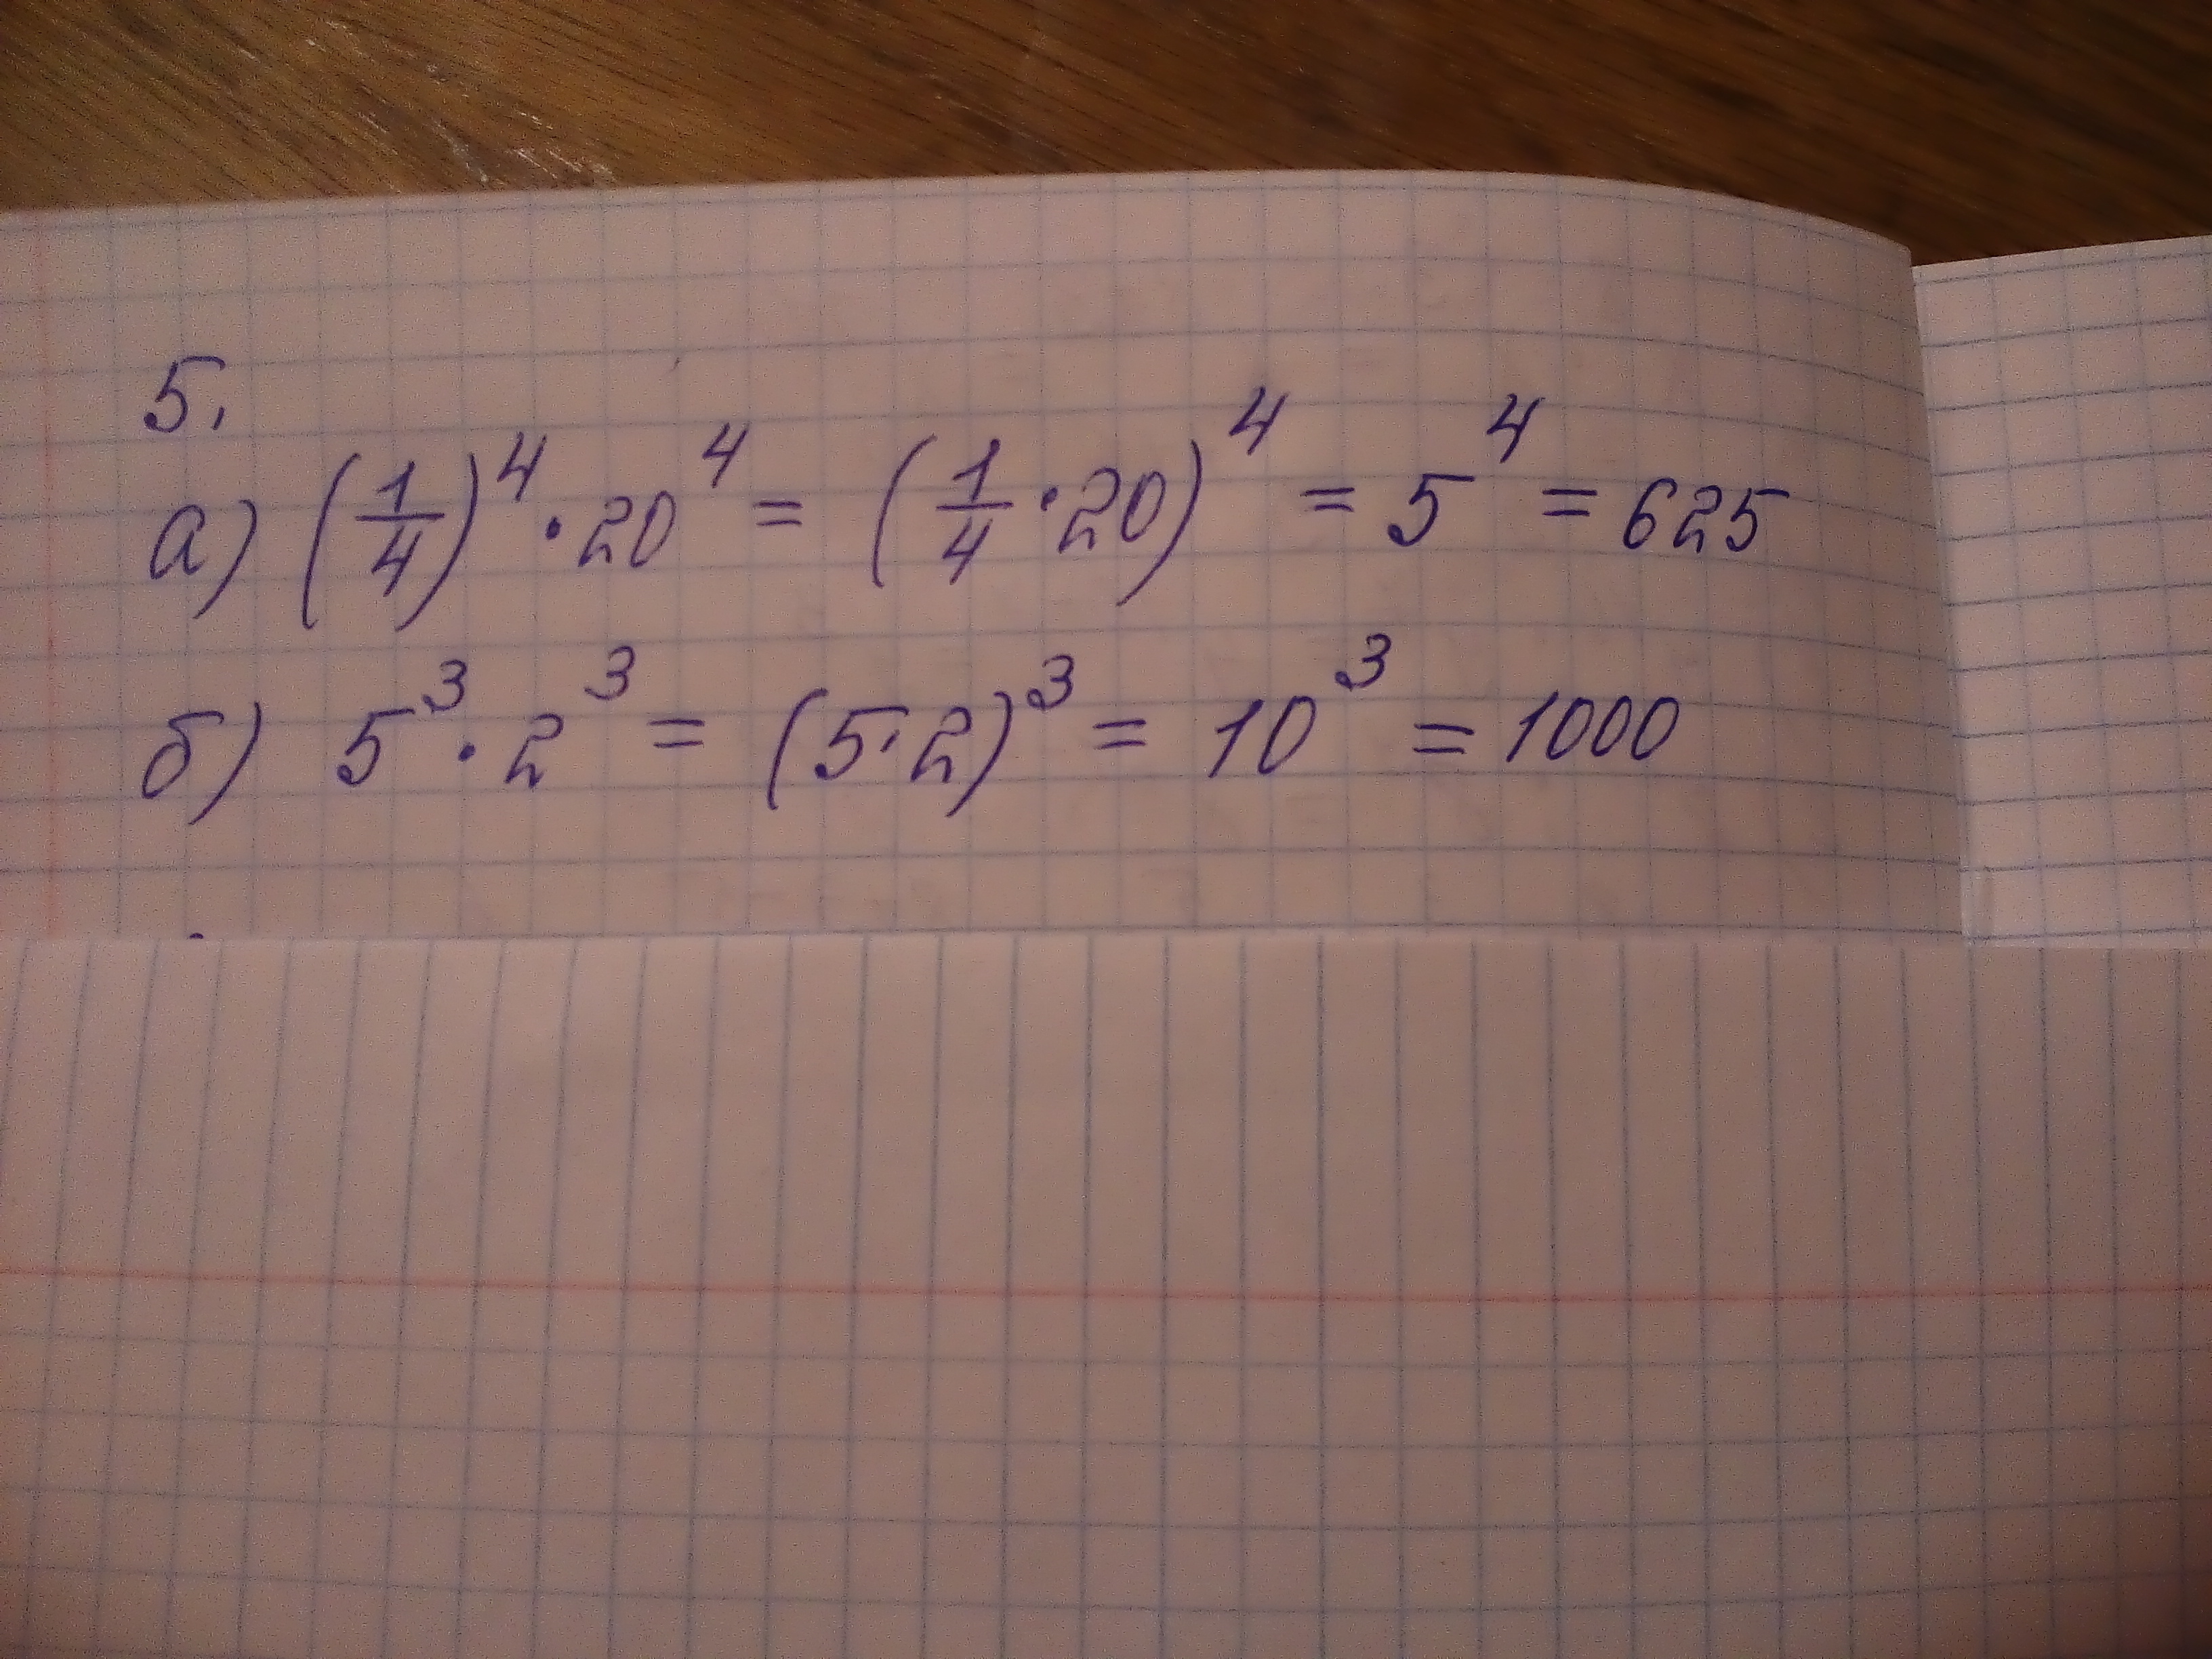 5.
а) (1/4)⁴ · 20⁴ = (1/4 · 20)⁴ = 5⁴ = 625
б) 5³ · 2³ = (5 · 2)³ = 10³ = 1000